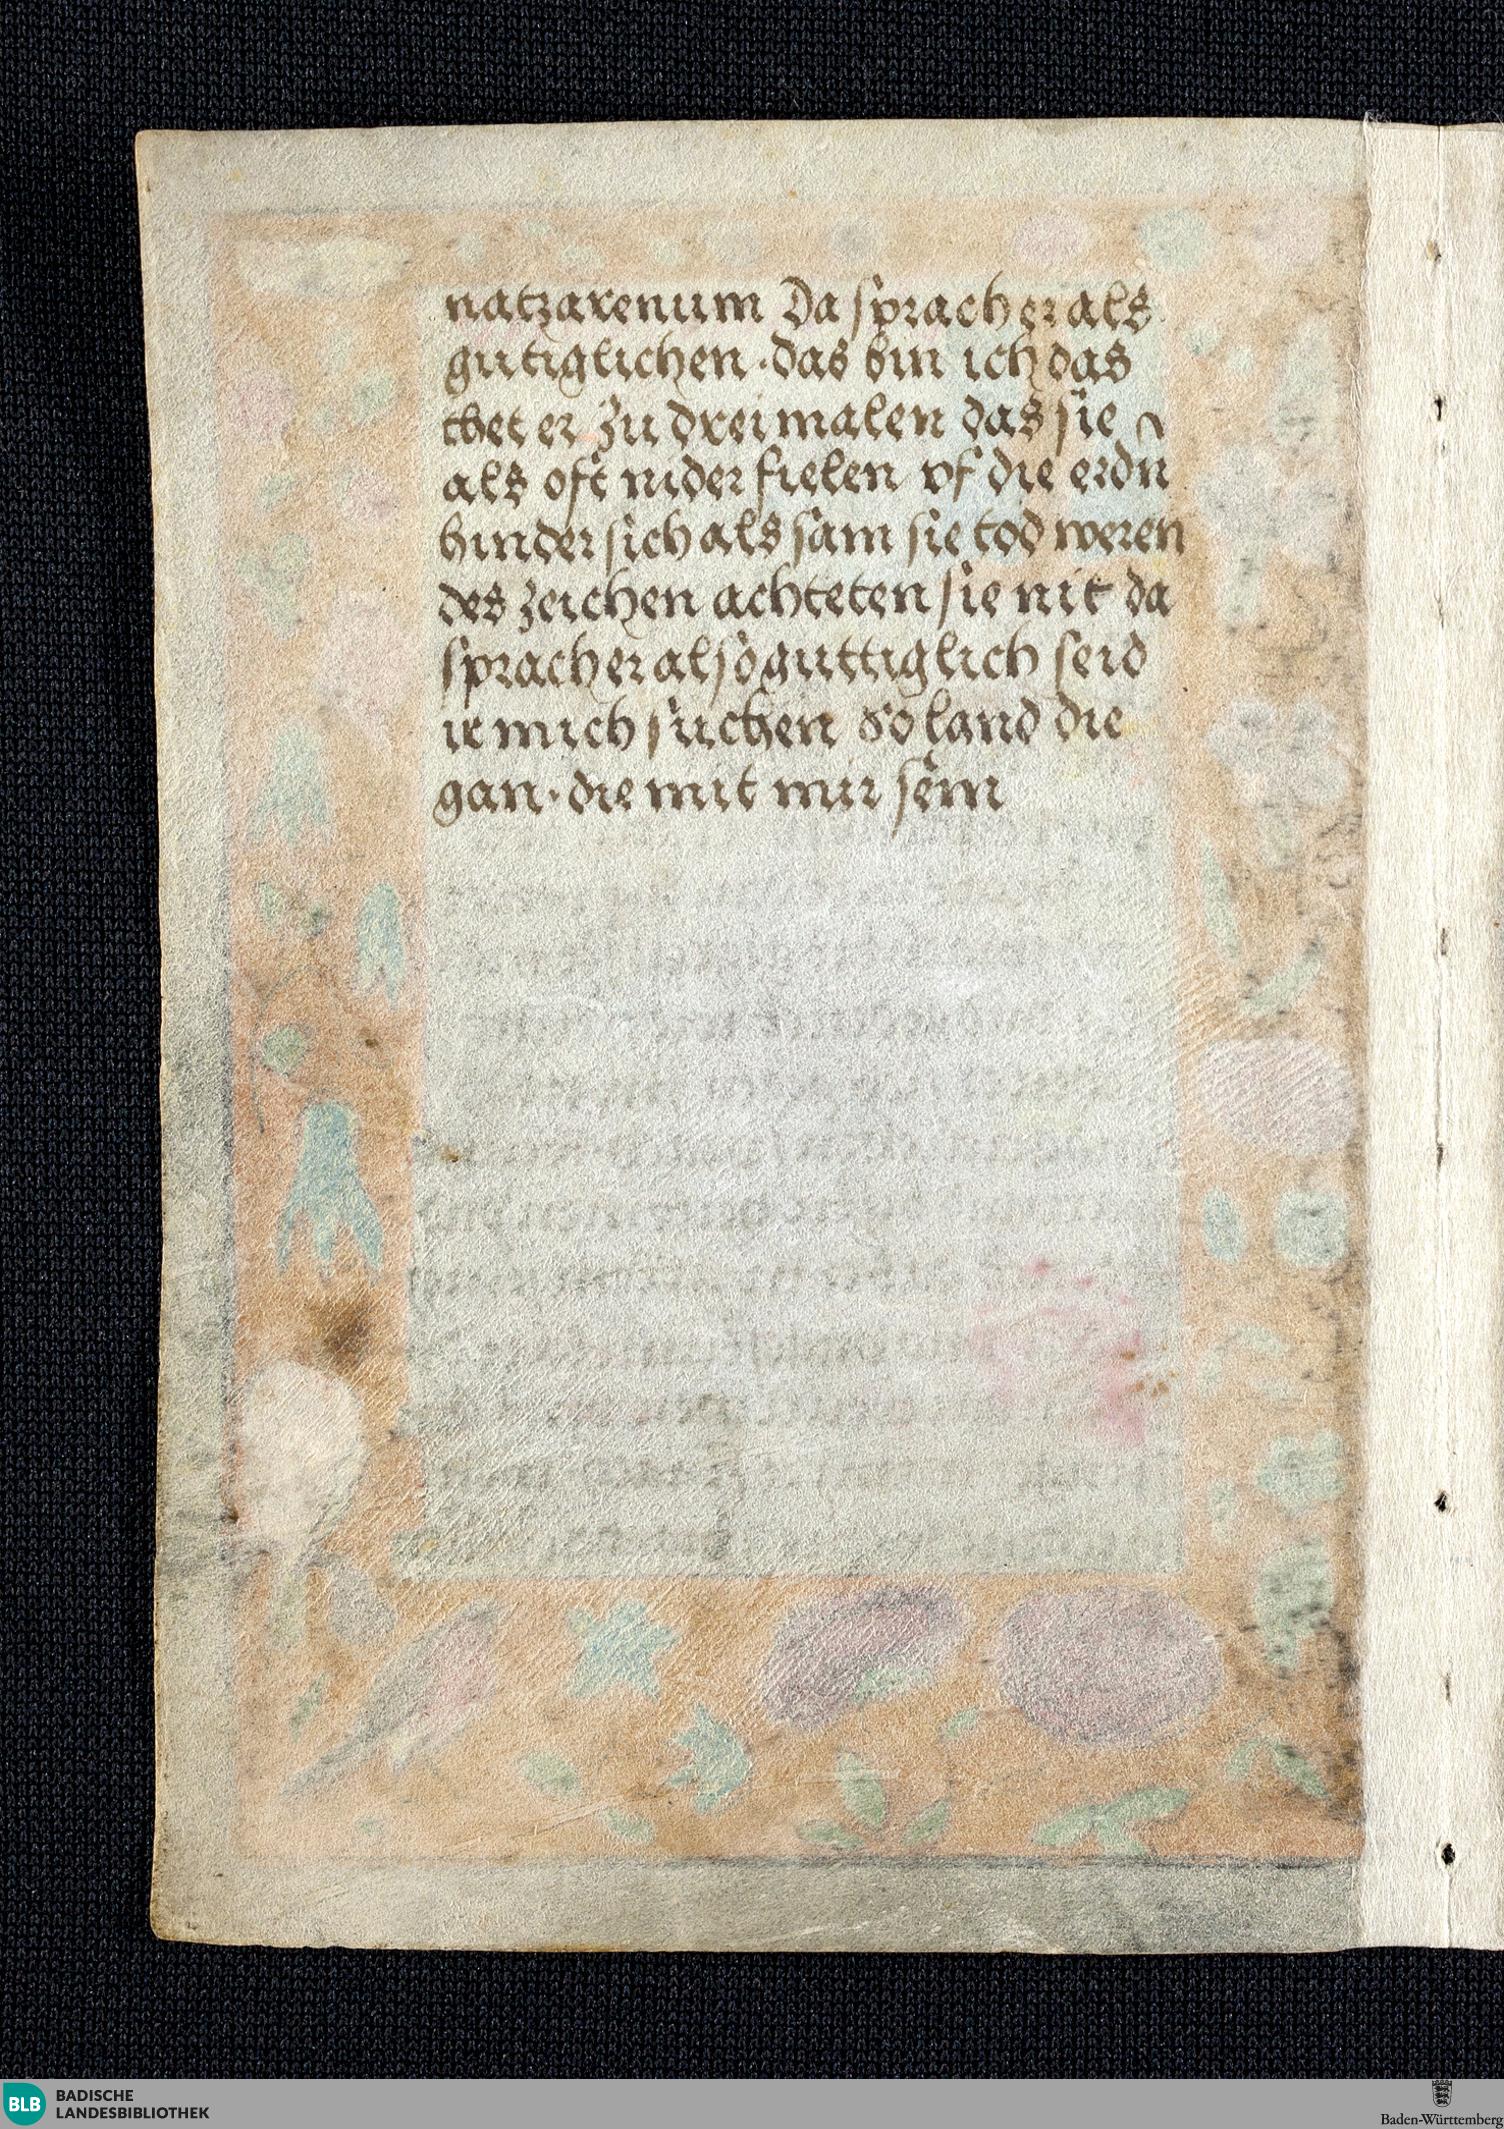 natzarenum Da sprach er als
gutiglichen · das bin ich das
thet er zu dreimalen das sie
als oft nider fielen vf die erdn̄
hinder sich als sam sie tod weren
des zeichen achteten sie nit da
sprach er also guttiglich seid
ir mich suchen So land die
gan · die mit mir sein
BLB
BADISCHE
LANDESBIBLIOTHEK
Baden-Württemberg